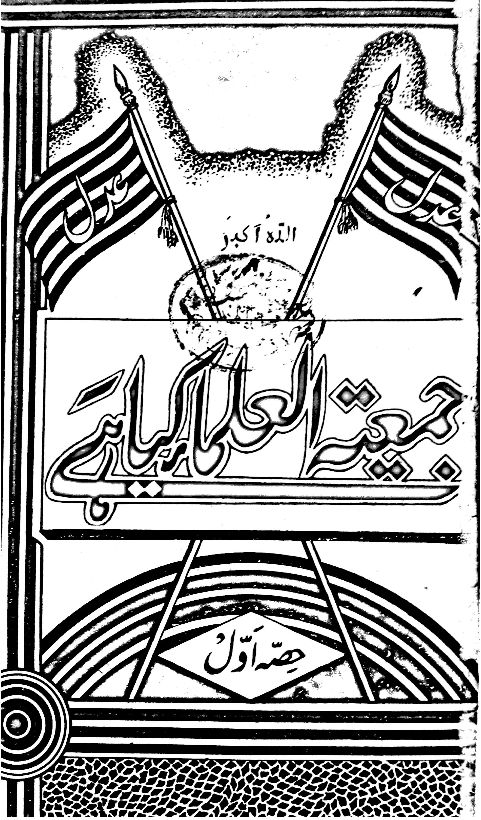 عدل
عدل
اللہُ اَکبَر
جمعیتہ العلما کیا ہے
حِصّہ اَوّل